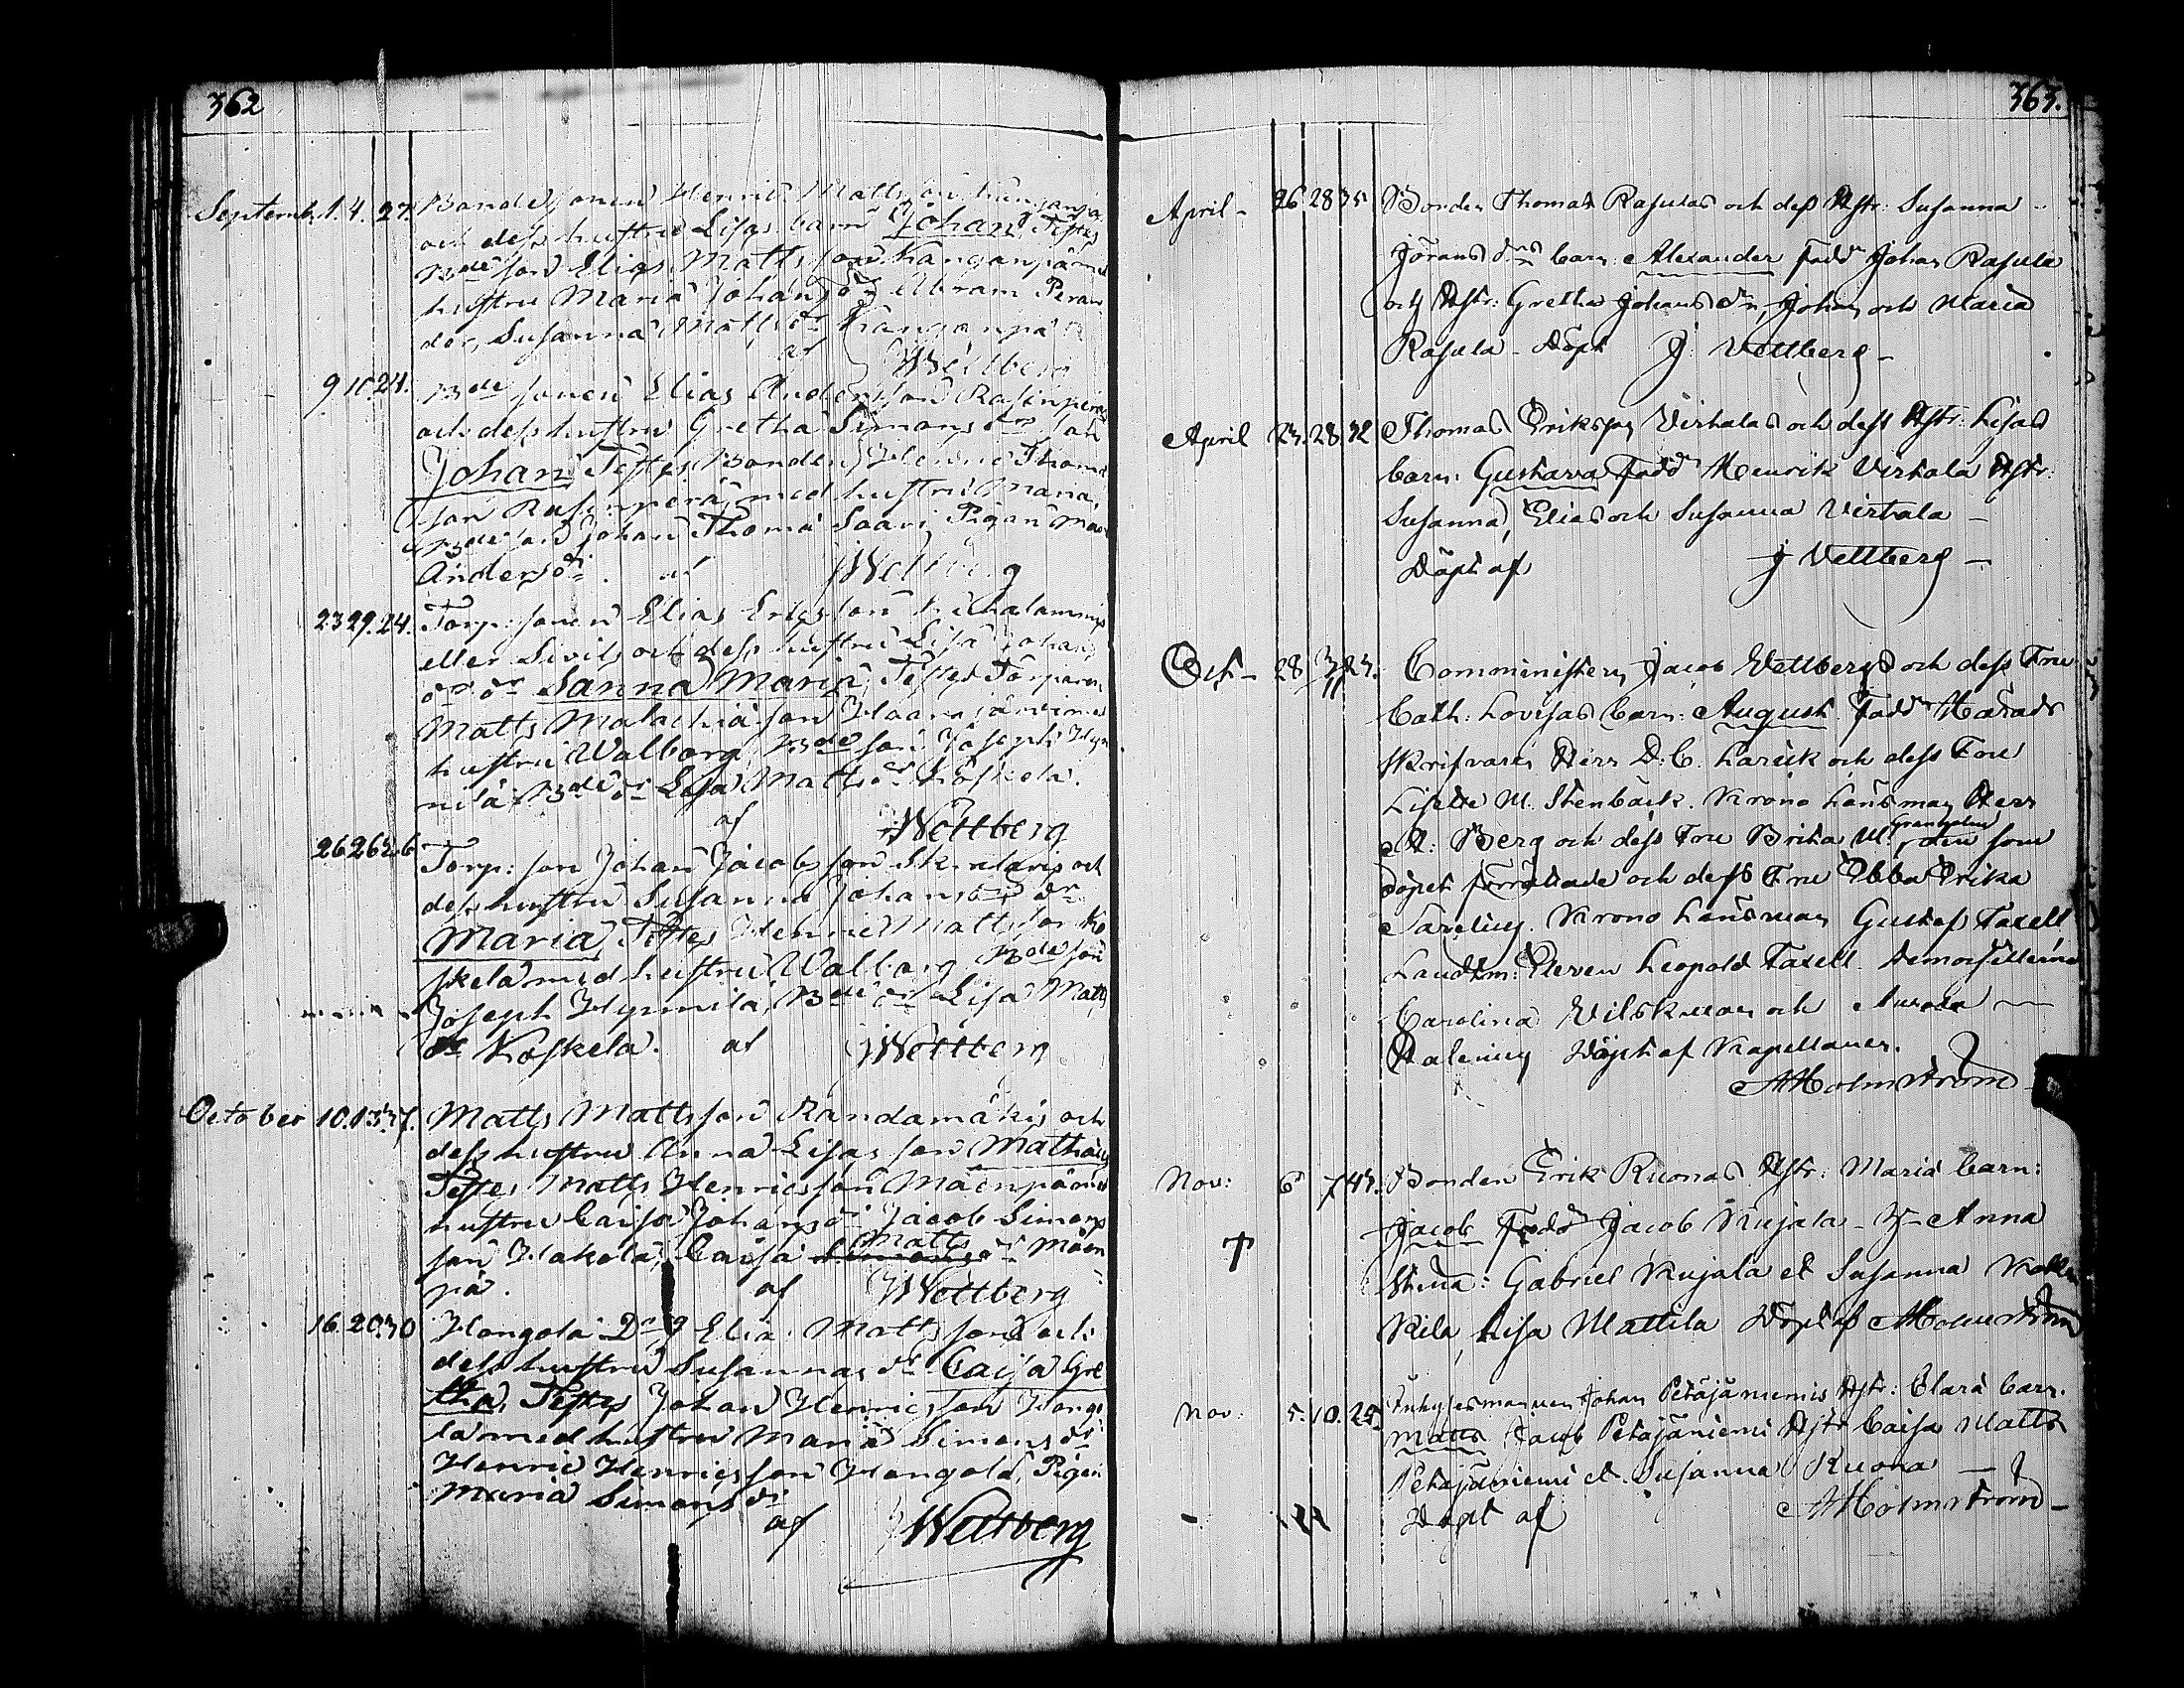 362
Septemb. 1. 4. 27. Bondesonen Henric Mattsson
och dess hustru Lisas barn Johan, Testes
Bdeson Elias Mattsson Kanganpä med
hustru Maria Johansdr Abram Peran
der, Susanna Mattsdr Kanganpä
af Wettberg
9 10. 24. Bdesonen Elias Andersson Rasinperas
och dess hustru Gretha Simonsdrs son
Johan Testes Bonden Henric Thomas
son Rasinperä med hustru Maria,
Bdeson Johan Thomä Saari Pigan Maria
Andersdr. af JWettberg
23 29. 24. Torp: sonen Elias Ericsson
eller Sivils och dess hustru Lisa Johans
drs dr Sanna Maria, Testes Torparen
Matts Malachiäson Haanajärvi med
hustru Walborg, Bdeson Joseph Hyn
nilä Bdedr Lisa Mattsdr Koskela.
af JWettberg
26 26 26 Torp: son Johan Jacobsson och
dess hustru Susanna Johansdrs dr
Maria, Testes Henric Mattsson Ko
skela med hustru Walborg Bdeson
Joseph Hynnilä, Bdedr Lisa Matts
dr Koskela. af JWettberg
October 10. 13. 37. Matts Mattsson Randamäkis och
dess hustru Anna Lisas son Mathäus
Testes Matts Henricsson Mäenpä med
hustru Caisa Johansdr Jacob Simons
son Hakola, Caisa Matts dr Mäen
pä. af JWettberg
16. 20. 30 Hongola Elias Mattsson och
dess hustru Susannas dr Caisa Gre
tha, Testes Johan Henricsson Hongo
la med hustru Maria Simonsdr
Henric Henricsson Hongola, Pigan
Maria Simonsdr
af JWettberg
363.
April - 26 28 35 Bonden Thomas Rasulas och dess Hstr: Susanna
Jörans drs barn: Alexander Fadd: Johan Rasula
och Hstr: Gretha Johans dr, Johan och Maria
Rasula - Döpt J: Wettberg -
April 23. 28 32 Thomas Eriksson Virtalas och dess Hstr: Lisas
barn: Gustava Fadd: Henrik Virtala Hstr:
Susanna, Elias och Susanna Virtala -
Döpt af J Wettberg -
Oct - 28 3/11 23. Comministern Jacob Wettbergs och dess Fru
Cath: Lovisas barn: August. Fadd: Härads
skrifvaren Herr D. C. och dess Fru
Lisette M. Stenbäck. Krono Länsman Herr
A: Berg och dess Fru Brita M: Granholm den som
döpet förrättade och dess Fru Ebba Erika
Krono Länsman Gustaf Taxell
Landtm: Eleven Leopold Taxell. Demoisellerna
Carolina Vilskman och Aurora
Döpt af Kapellanen.
AHolmström
Nov: 6 7 43. Bonden Erik Ruonas Hstr: Maria barn:
Jacob Fadd: Jacob Kujala - Anna
T Stina: Gabriel Kujala et Susanna
Lisa Mattila Döpt af AHolmström
Nov: 5. 10. 25 Inhysesmannen Johan Petäjäniemis Hstr: Clara barn.
Matts Jacob Petäjäniemi Hstr Caisa Matts
Petäjäniemi et. Susanna Ruona
Döpt af AHolmström -